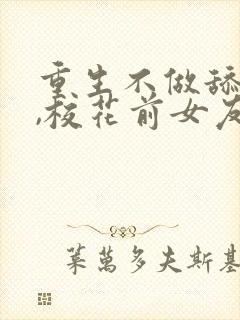 重生不做舔
,校花前女友
莱萬多夫斯基